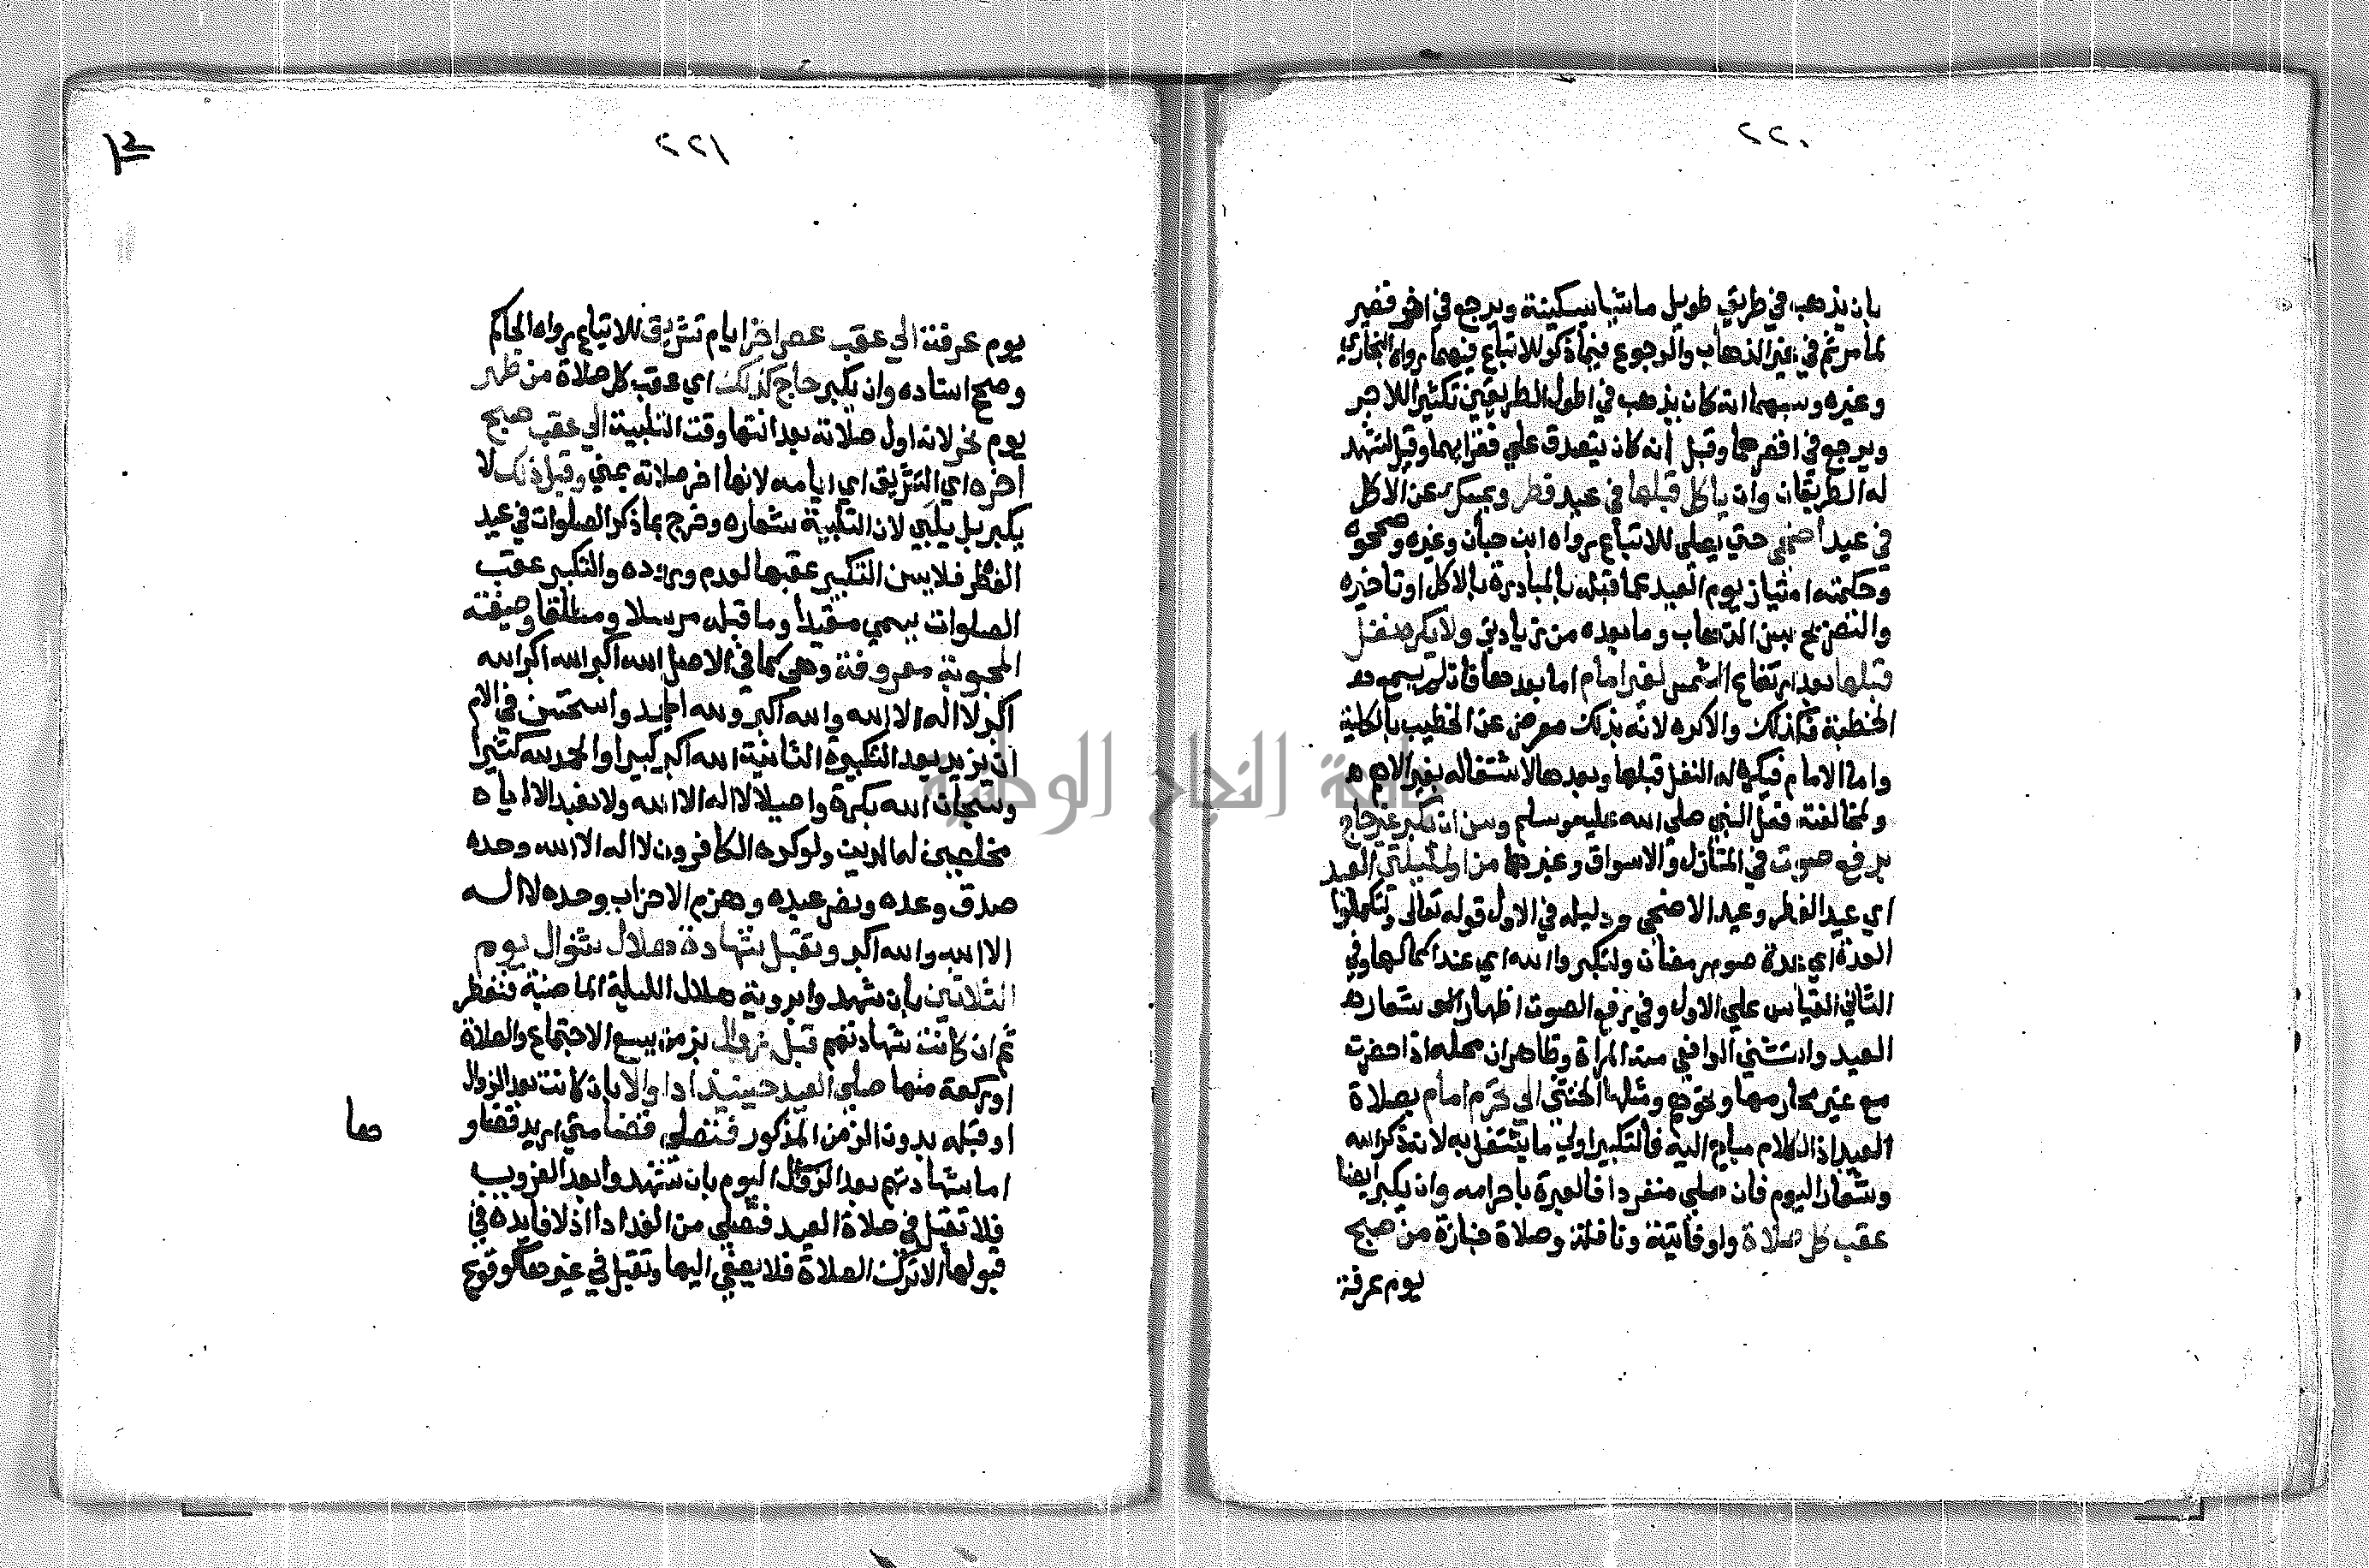 ٢٢٠
بان يذهب في طريق طويل ماشيا بسكينة ويرجع في اخر قصير
كما مر ثم في غير الذهاب والرجوع فيما ذكر للاتباع فيهما رواه البخاري
وغيره وسببهما انه كان يذهب في اطول الطريقين تكثيرا للاجر
ويرجع في اقصرهما وقيل انه كان يتصدق علي فقرايهما وقيل لتشهد
له الطريقان وان ياكل قبلها في عيد فطر ويمسك عن الاكل
في عيد اضحي حتي يصلي للاتباع رواه ابن حبان وغيره وصححوه
وحكمته امتياز يوم العيد عما قبله بالمبادرة بالاكل او تاخيره
والتصريح بسن الذهاب وما بعده من زيادتي ولا يكره نفل
قبلها بعد ارتفاع الشمس لغير امام اما بعدها فان لم يسمع
الخطبة فكذلك والا كره لانه بذلك معرض عن الخطيب بالكلية
واما الامام فيكره له النفل قبلها وبعدها لاشتغاله بغير الاهم
ولمخالفته فعل النبي صلي الله عليه وسلم وسن ان يكبر غير حاج
برفع صوت في المنازل والاسواق وغيرهما من اول ليلتي العيد
اي عيد الفطر وعيد الاضحي ودليله في الاول قوله تعالي ولتكملوا
العدة اي عدة صوم رمضان ولتكبروا الله اي عند اكمالها وفي
الثاني القياس علي الاول وفي رفع الصوت اظهار شعار
العيد واستثني الرافعي منه المراة وظاهر ان محله اذا حضرت
مع غير محارمها ونحوهم ومثلها الخنثي الي تحرم امام بصلاة
العيد اذ الكلام مباح اليه فالتكبير اولي ما يشتغل به لانه ذكر الله
وشعار اليوم فان صلي منفردا فالعبرة باحرامه وان يكبر ايضا
عقب كل صلاة ولو فائتة ونافلة وصلاة جنازة من صبح
يوم عرفة
٢٢١
يوم عرفة الي عقب عصر اخر ايام تشريق للاتباع رواه الحاكم
وصحح اسناده وان يكبر حاج كذلك اي عقب كل صلاة من ظهر
يوم نحر لانه اول صلاته بعد انتها وقت التلبية الي عقب صبح
اخره اي التشريق اي ايامه لانها اخر صلاته بمني وقبل ذلك لا
يكبر بل يلبي لان التلبية شعاره وخرج بما ذكر الصلوات في عيد
الفطر فلا يسن التكبير عقبها لعدم وروده والتكبير عقب
الصلوات يسمي مقيدا وما قبله مرسلا ومطلقا وصيغته
المحبوبة معروفة وهي كما في الاصل الله اكبر الله اكبر الله
اكبر لا اله الا الله والله اكبر ولله الحمد واستحسن في الام
ان يزيد بعد التكبيرة الثانية الله اكبر كبيرا والحمد لله كثيرا
وسبحان الله بكرة واصيلا لا اله الا الله ولا نعبد الا اياه
مخلصين له الدين ولو كره الكافرون لا اله الا الله وحده
صدق وعده ونصر عبده وهزم الاحزاب وحده لا اله
الا الله والله اكبر وتقبل شهادة هلال شوال يوم
الثلاثين بان شهدوا برؤية هلال الليلة الماضية فنفطر
ثم ان كانت شهادتهم قبل زوال بزمن يسع الاجتماع والصلاة
او ركعة منها صلي العيد حينيذ ادا والا بان كانت بعد الزوال
او قبله بدون الزمن المذكور فتصلي قضا متي اريد قضاو
ها
اما شهادتهم بعد اليوم بان شهدوا بعد الغروب
فلا تقبل في صلاة العيد فتصلي من الغد ادا اذ لا فايدة في
قبولها الا ترك الصلاة فلا يصغي اليها وتقبل في غيرها كوقوع